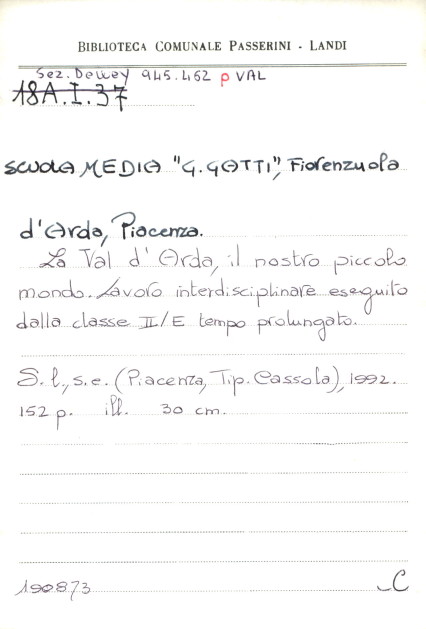 BIBLIOTECA COMUNALE PASSERINI - LANDI
Sez. Dewey 945.462 p VAL
18A.I.37
SCUOLA MEDIA "G.GATTI", Fiorenzuola
d'Arda, Piacenza.
La Val d'Arda, il nostro piccolo
mondo. Lavoro interdisciplinare eseguito
dalla classe II/E tempo prolungato.
S.l., s.e. (Piacenza, Tip. Cassola), 1992.
152 p. ill. 30 cm.
190873
C